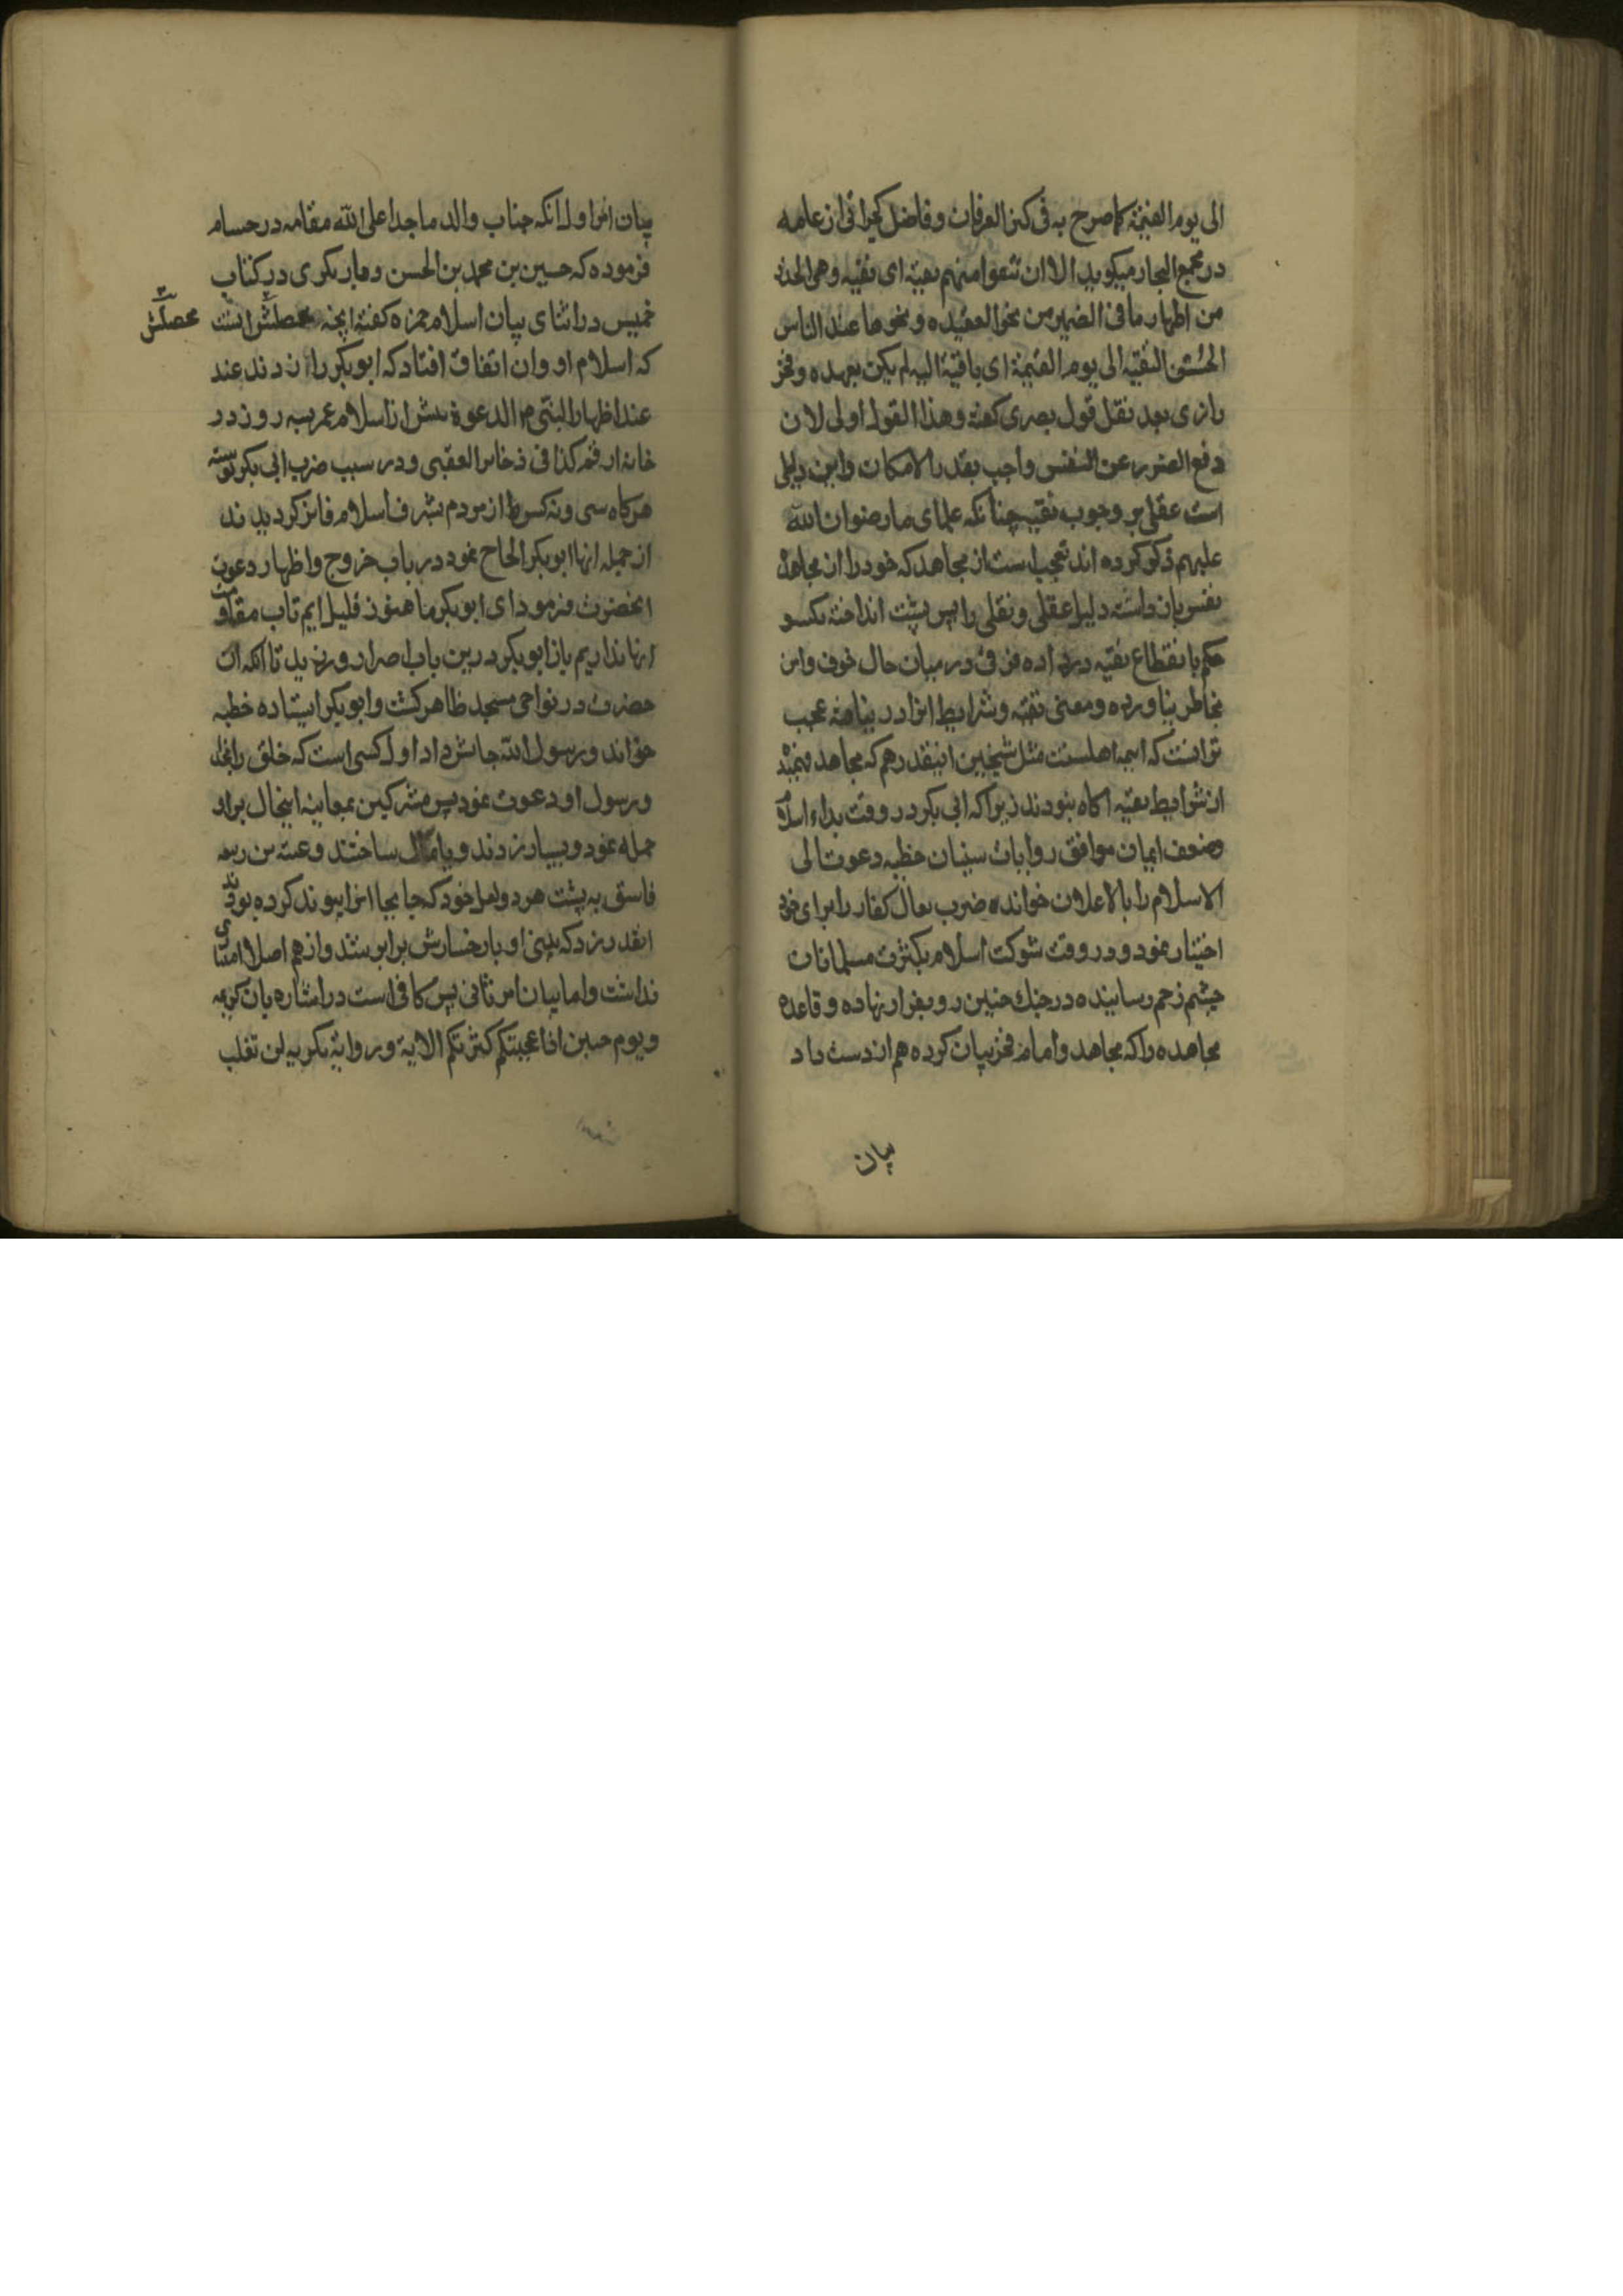 الی یوم القیمة کما صرح به فی کنز العرفان و فاضل کجراتی از عامه
در مجمع البحار میکوید الا ان تتقوا منهم تقیة ای تقیه و هی الحذر
من اظهار ما فی الضمیر من نحو العقیده و نحوها عند الناس
الحسن التقیه الی یوم القیمة ای باقیة الیه لم یکن بعهده و فخر
رازی بعد نقل قول بصری کفته و هذا القول اولی لان
دفع الضرر عن النفس واجب بقدر الامکان و این دلیلی
است عقلی بر وجوب تقیه چنانکه علمای ما رضوان الله
علیهم ذکر کرده اند تعجب است از مجاهد که خود را از مجاهدهٔ
نفس باز داشته دلیل عقلی و نقلی را پس پشت انداخته یکسو
حکم بانقطاع تقیه در داده فرقی در میان حال خوف و امن
بخاطر نیاورده و معنی تقیه و شرایط انرا در نیافته عجب
تر انست که ایمه اهلسنت مثل شیخین اینقدر هم که مجاهد فهمیده
از شرایط تقیه اکاه نبودند زیرا که ابی بکر در وقت بداء اسلام
و ضعف ایمان موافق روایات سنیان خطبه دعوت الی
الاسلام را بالاعلان خوانده ضرب نعال کفار را برای خود
اختیار نمود و در وقت شوکت اسلام بکثرت مسلمانان
چشم زخم رسانیده در جنك حنین رو بفرار نهاده و قاعده
مجاهده را که مجاهد و امام فخر بیان کرده هم از دست داد
بیان
بیان امر اول انکه جناب والد ماجد اعلی الله مقامه در حسام
فرموده که حسین بن محمد بن الحسن دیار بکری در کتاب
خمیس در اثنای بیان اسلام حمزه کفته انچه محصلش انست
محصلش
که اسلام او وان اتفاق افتاد که ابو بکر را زدند عند
عند اظهار النبی الدعوة پیش از اسلام عمر بسه روز در
خانه ارقم کذا فی ذخایر العقبی و در سبب ضرب ابی بکر نوشته
هرکاه سی و نه کس از مردم بشرف اسلام فایز کردیدند
از جمله انها ابو بکر الحاح نمود در باب خروج و اظهار دعوت
انحضرت فرمود ای ابو بکر ما هنوز قلیل ایم تاب مقاومت
انها نداریم باز ابو بکر درین باب اصرار ورزید تا انکه ان
حضرت در نواحی مسجد ظاهر کشت و ابو بکر ایستاده خطبه
خواند و رسول الله جانش داد اول کسی است که خلق را بخدا
و رسول او دعوت نمود پس مشرکین بمعاینه اینحال بر او
حمله نمود و بسیار زدند و پامال ساختند و عتبه بن ربیعه
فاسق به پشت هر دو نعل خود که جابجا انرا پیوند کرده بودند
انقدر زد که بینی او با رخسارش برابر شد و از هم اصلا امتیازی
نداشت و اما بیان امر ثانی پس کافی است در اشاره بان کریمه
و یوم حنین اذا عجبتکم کثرتکم الایة و روایة بکریه لن تغلب